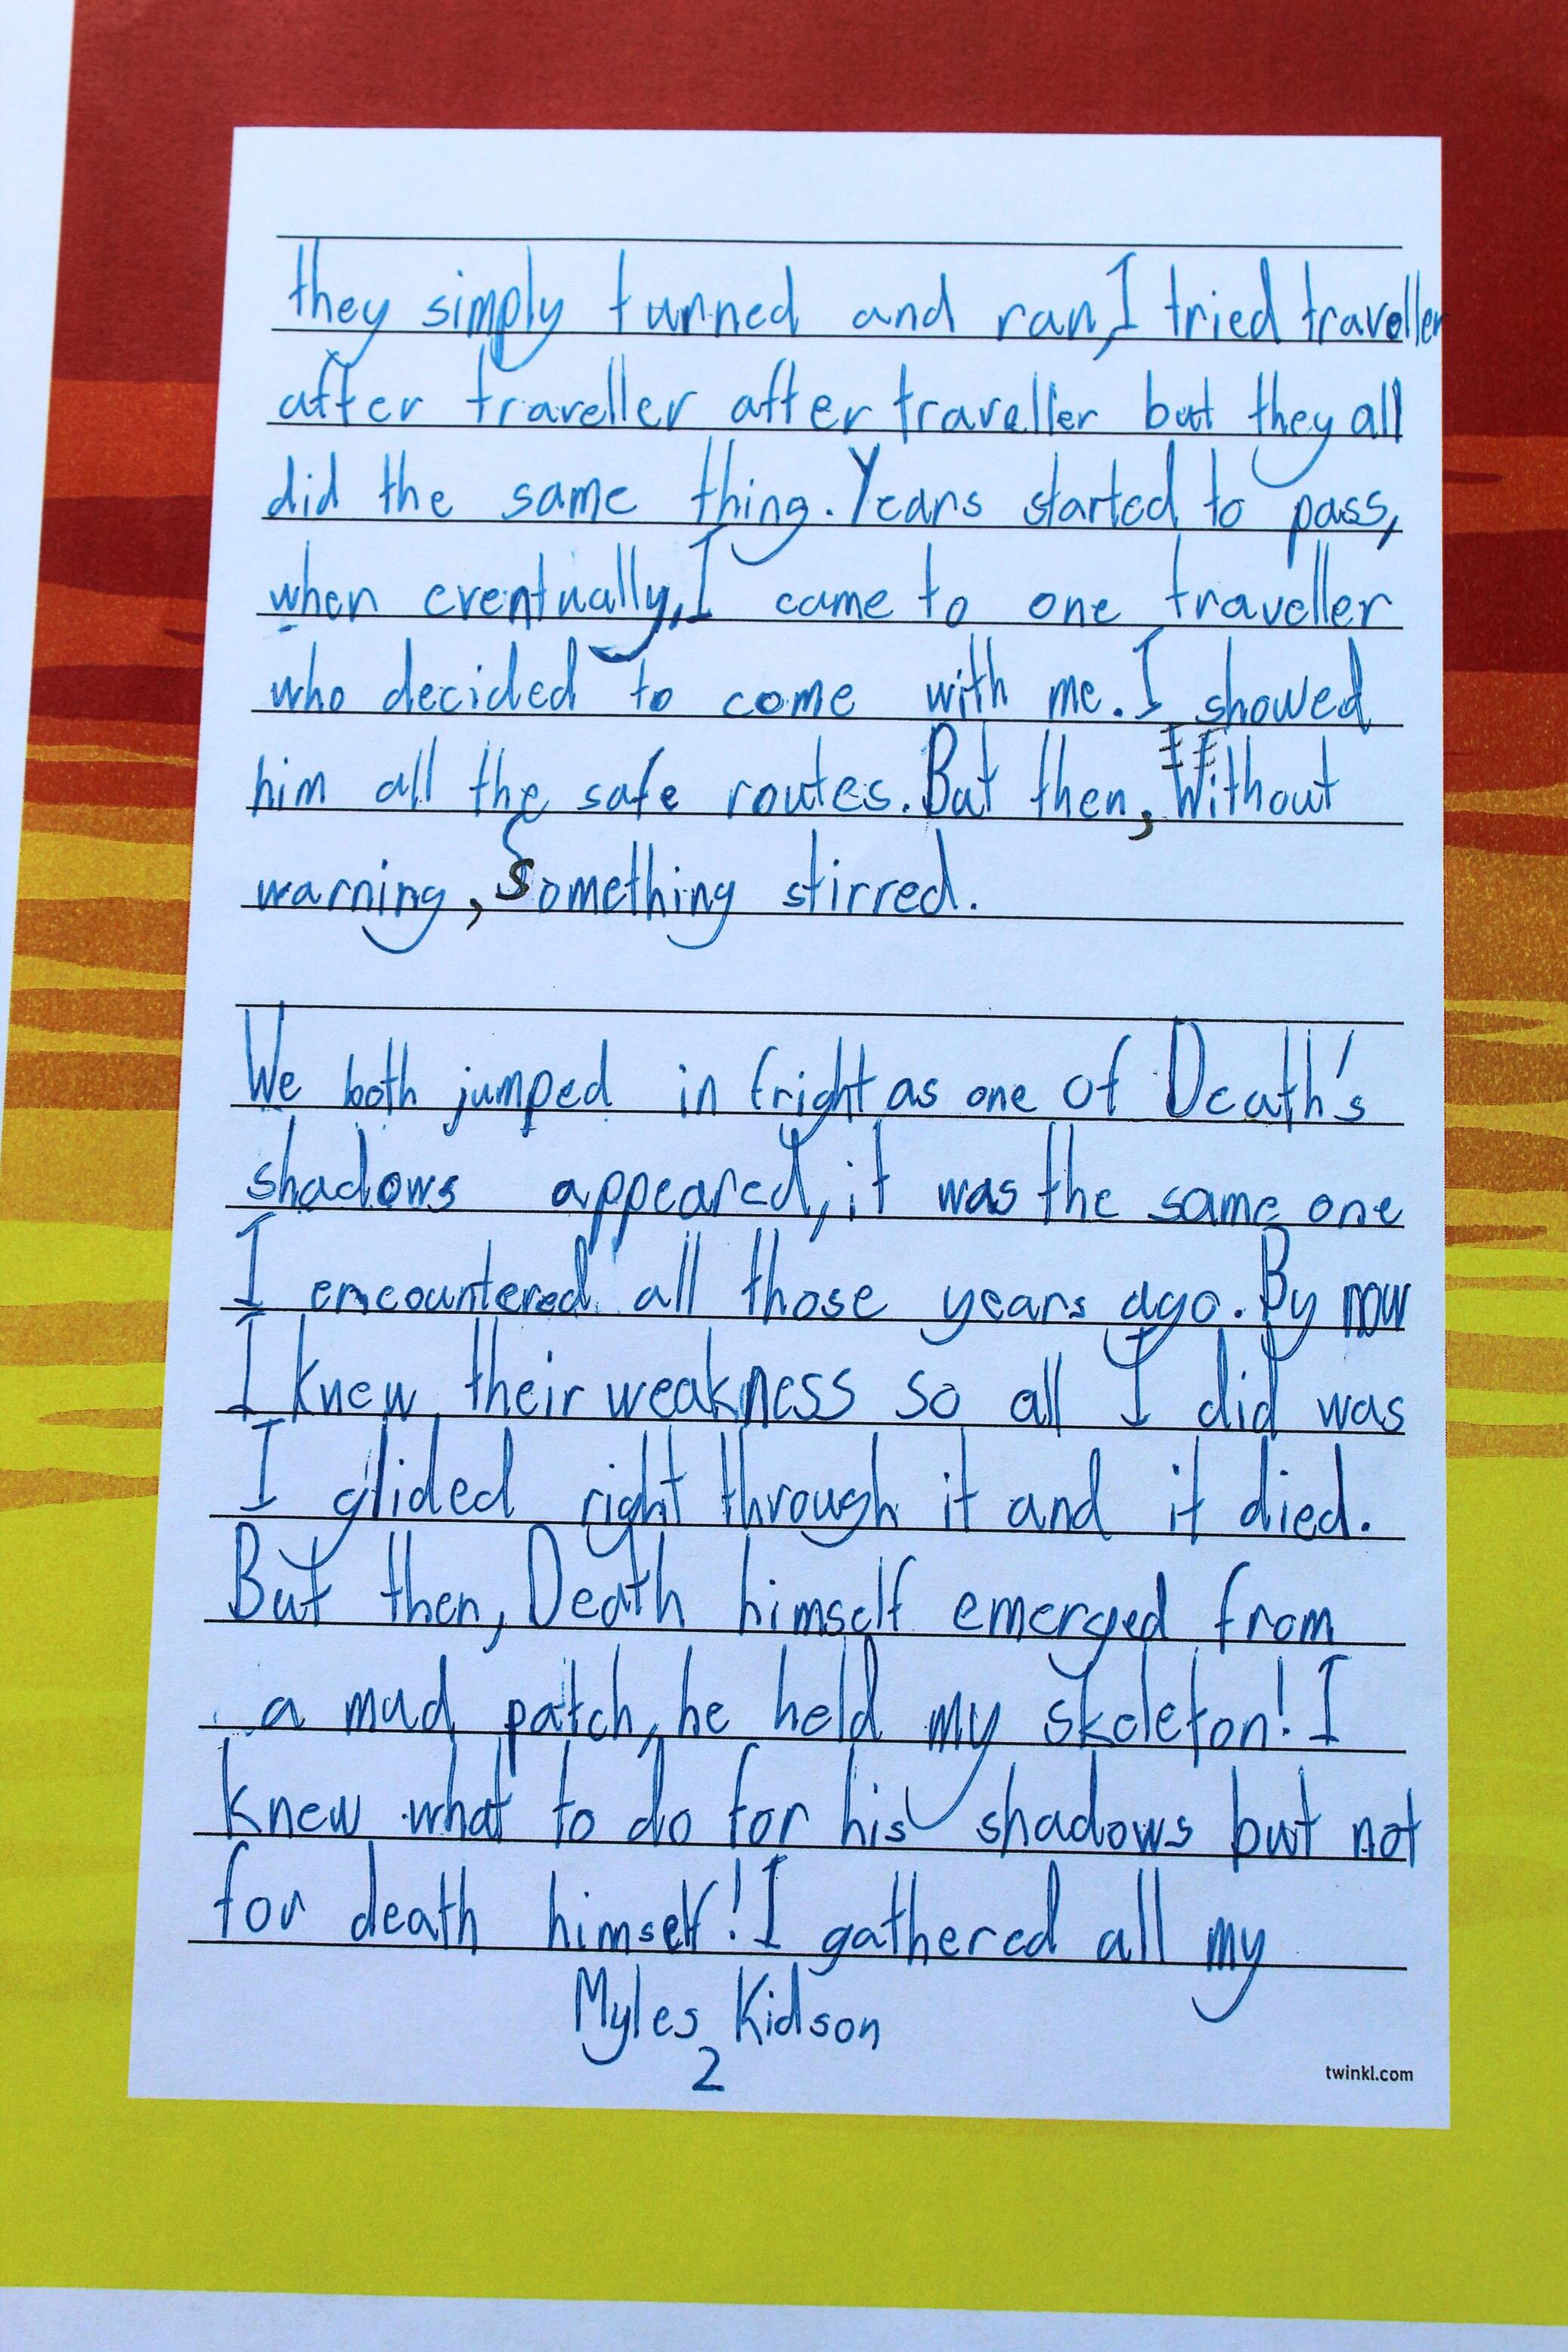 they simply turned and ran, I tried traveller
after traveller after traveller but they all
did the same thing. Years started to pass,
when eventually, I came to one traveller
who decided to come with me. I showed
him all the safe routes. But then, Without
warning, Something stirred.
We both jumped in fright as one of Death's
shadows appeared, it was the same one
I encountered all those years ago. By now
I knew their weakness so all I did was
I glided right through it and it died.
But then, Death himself emerged from
a mud patch, he held my skeleton! I
knew what to do for his shadows but not
for death himself! I gathered all my
Myles Kidson
2
twinkl.com